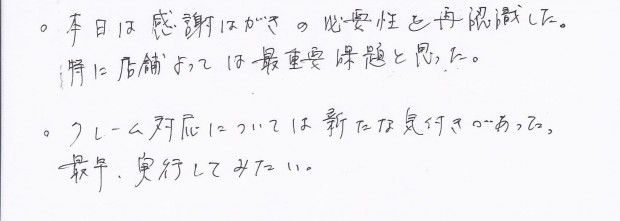 。本日は感謝はがきの必要性を再認識した。
特に店舗よっては最重要課題と思った。
。クレーム対応については新たな気付きがあった。
最早、実行してみたい。